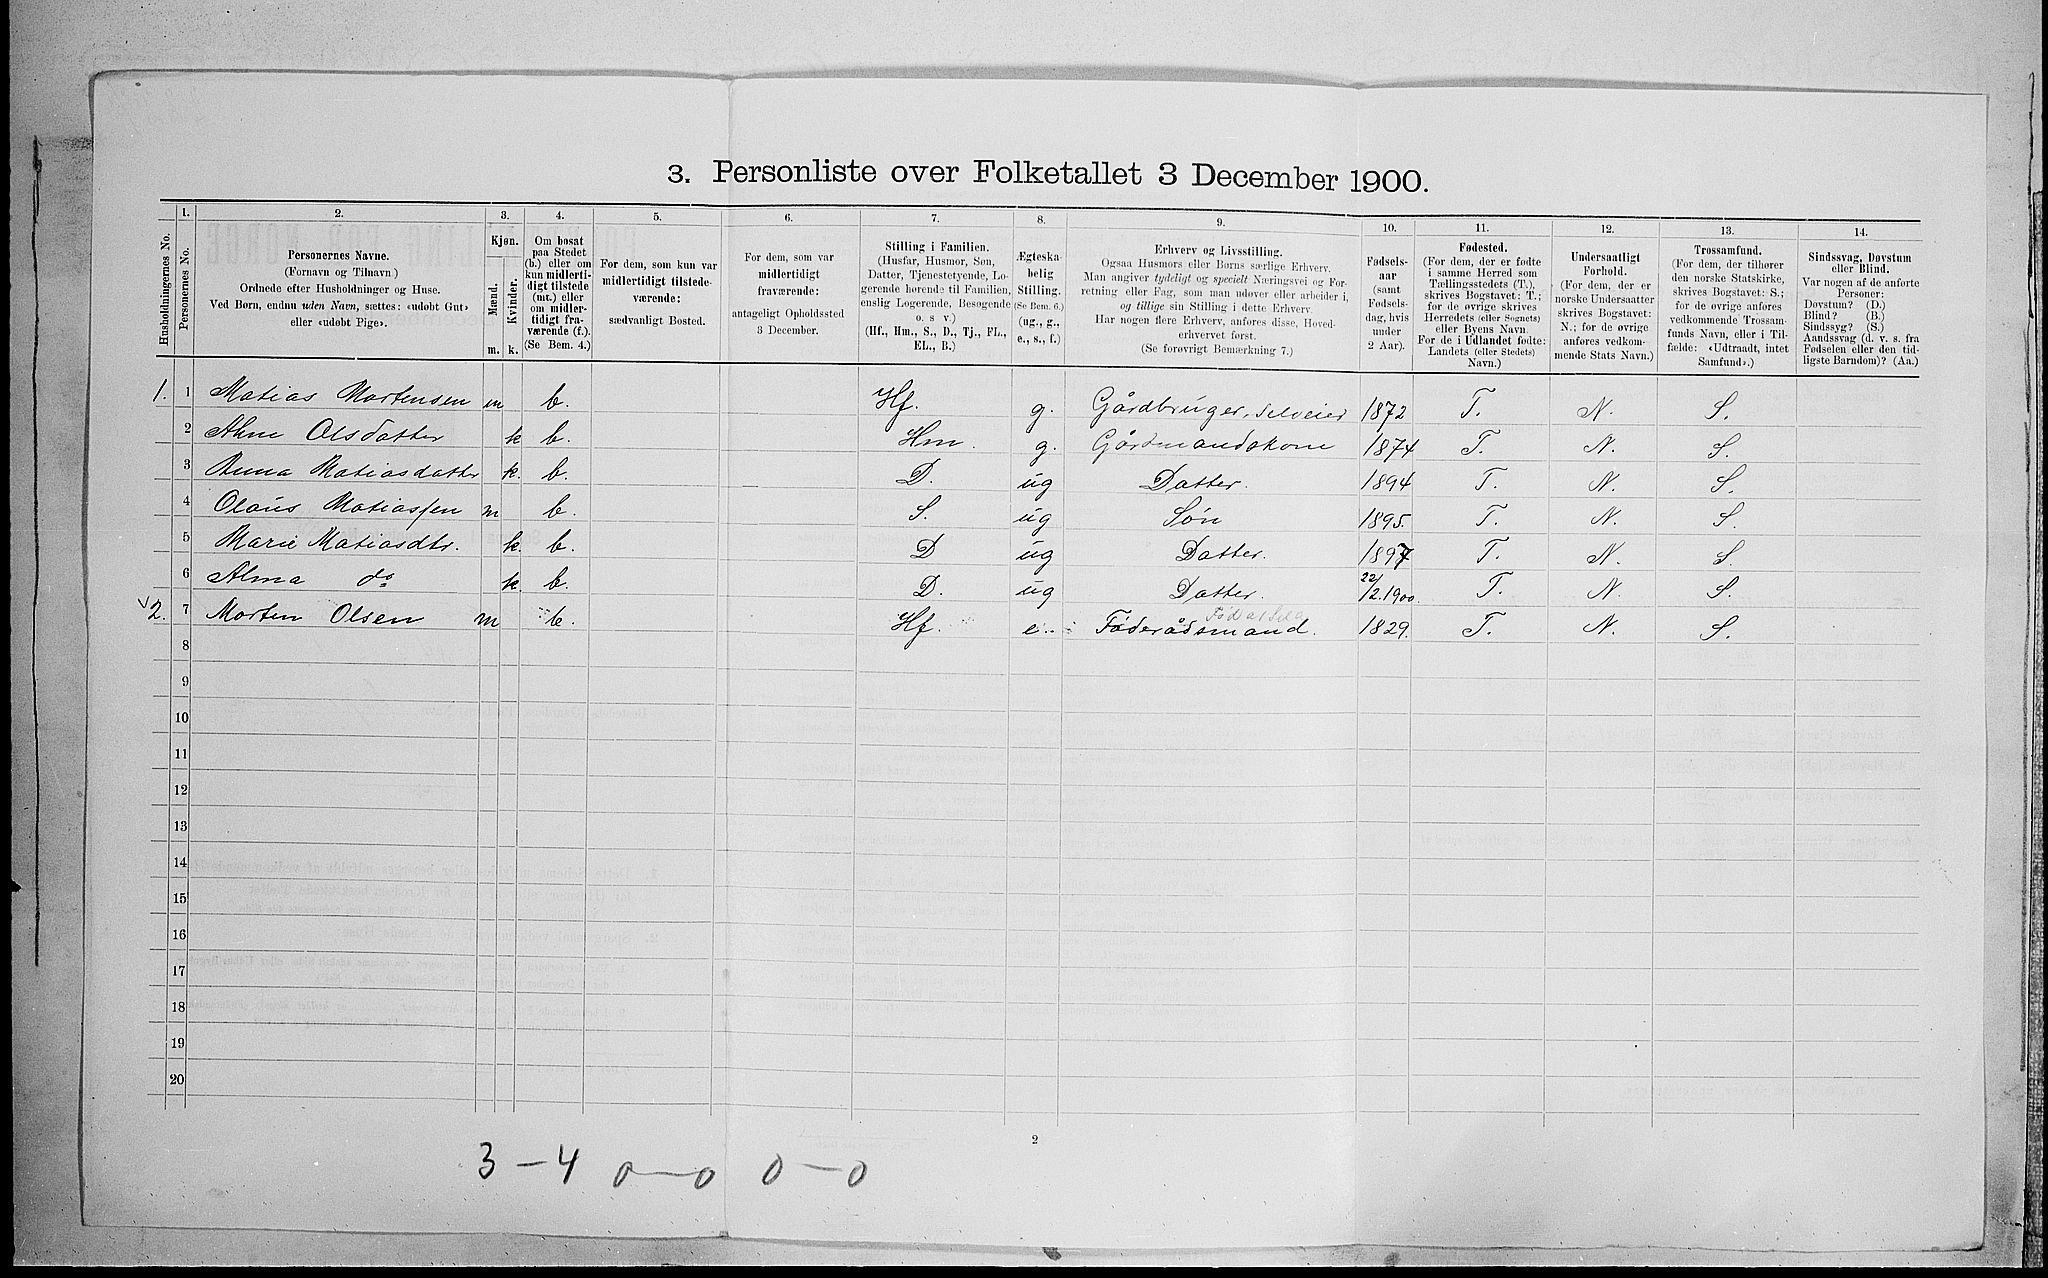 3. Personliste over Folketallet 3 December 1900.
1. 2. 3. 4. 5. 6. 7. 8. 9. 10. 11. 12. 13. 14.
Husholdningernes No.
Personernes No.
Personernes Navne.
(Fornavn og Tilnavn)
Ordnede efter Husholdninger og Huse.
Ved Børn, endnu uden Navn, sættes: «udøbt Gut»
eller «udøbt Pige».
Kjøn.
Mænd.
Kvinder.
m. k.
Om bosat
paa Stedet
(b.) eller om
kun midlerti-
digt tilstede
(mt.) eller
om midler-
tidigt fra-
værende (f.).
(Se Bem. 4.)
For dem, som kun var
midlertidigt tilstede-
værende:
sædvanligt Bosted.
For dem, som var
midlertidigt
fraværende:
antageligt Opholdssted
3 December.
Stilling i Familien.
(Husfar, Husmor, Søn,
Datter, Tjenestetyende, Lo-
gerende hørende til Familien,
enslig Logerende, Besøgende
o. s v.)
(Hf., Hm., S., D., Tj., FL.,
EL., B.)
Ægteska-
belig
Stilling.
(Se Bem. 6.)
(ug., g.,
e., s., f.)
Erhverv og Livsstilling.
Ogsaa Husmors eller Børns særlige Erhverv.
Man angiver tydeligt og specielt Næringsvei og For-
retning eller Fag, som man udøver eller arbeider i,
og tillige sin Stilling i dette Erhverv.
Har nogen flere Erhverv, anføres disse, Hoved-
erhvervet først.
(Se forøvrigt Bemærkning 7.)
Fødsels-
aar
(samt
Fødsels-
dag, hvis
under
2 Aar).
Fødested.
(For dem, der er fødte
i samme Herred som
Tællingsstedets (T.),
skrives Bogstavet: T.;
for de øvrige skrives
Herredets (eller Sognets)
eller Byens Navn.
For de i Udlandet fødte:
Landets (eller Stedets)
Navn.)
Undersaatligt
Forhold.
(For dem, der er
norske Undersaatter
skrives Bogstavet:
N.; for de øvrige
anføres vedkom-
mende Stats Navn.)
Trossamfund.
(For dem, der tilhører
den norske Statskirke,
skrives Bogstavet: S.;
for de øvrige anføres
vedkommende Trossam-
funds Navn, eller i Til-
fælde: «Udtraadt, intet
Samfund».)
Sindssvag, Døvstum
eller Blind.
Var nogen af de anførte
Personer:
Døvstum? (D.)
Blind? (B.)
Sindssyg? (S.)
Aandssvag (d. v. s. fra
Fødselen eller den tid-
ligste Barndom)? (Aa.)
1. 1 Matias Mortensen m b. Hf. g. Gårdbruger, selveier 1872 T. N. S.
2 Ahne Olsdatter k b. Hm. g. Gårdmandskone 1874 T. N. S.
3 Anna Matiasdatter k. b. D. ug Datter. 1894 T. N. S.
4 Olaus Matiassen m b. S. ug Søn 1895. T. N. S.
5 Marie Matiasdtr. k. b. D ug Datter. 1897 T. N. S.
6 Alma do k b. D. ug Datter. 22/12.1900. T. N. S.
2. 7 Morten Olsen m b. Hf. e. Føderådsmand. 1829. T. N. S.
8
9
10
11
12
13
14
15
16
17
18
19
20
2
3 – 4 0 – 0 0 – 0